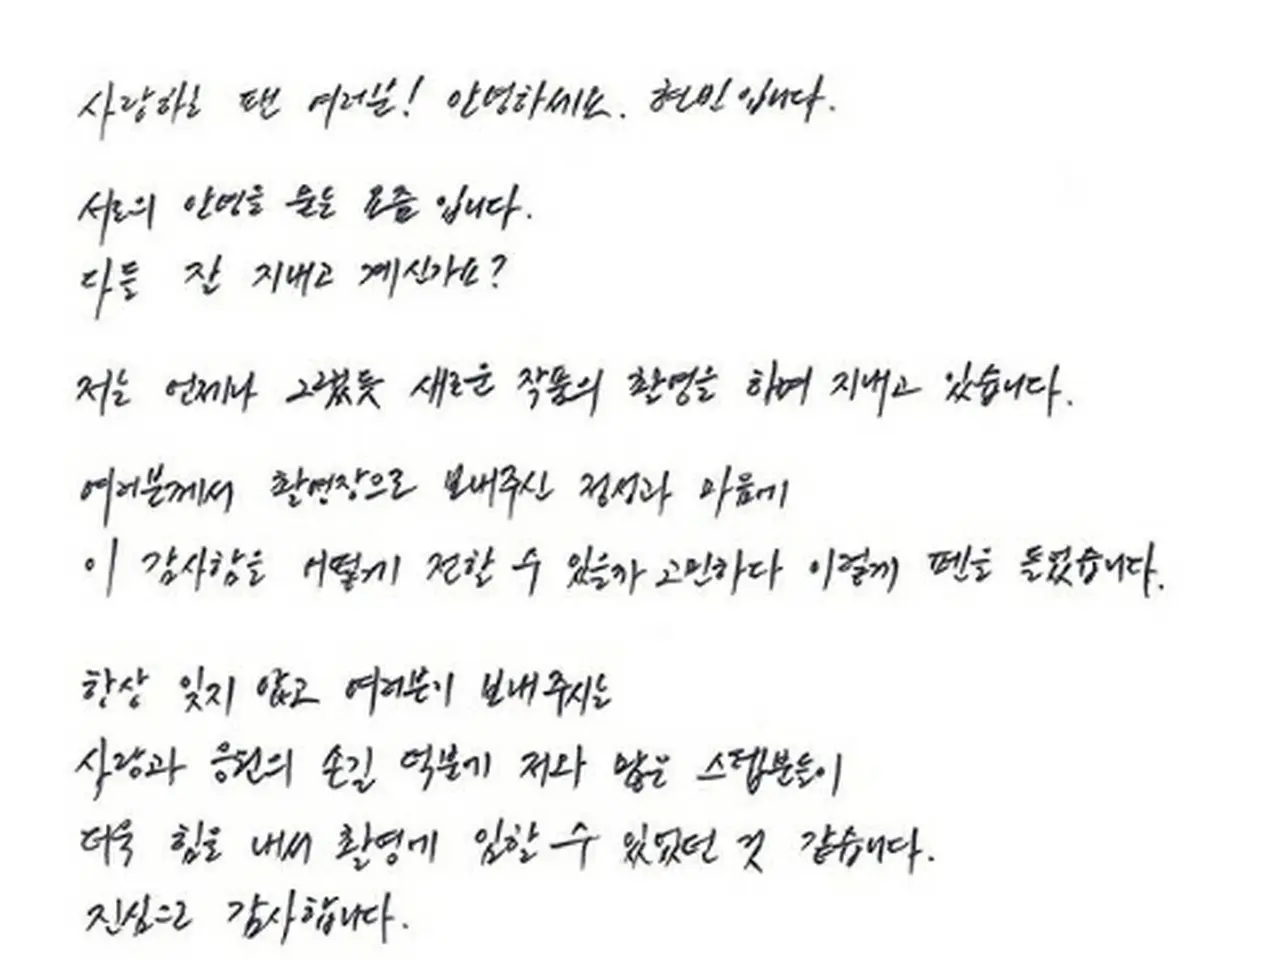 사랑하는 팬 여러분! 안녕하세요. 현빈입니다.
서로의 안녕을 묻는 요즘 입니다.
다들 잘 지내고 계신가요?
저는 언제나 그랬듯 새로운 작품의 촬영을 하며 지내고 있습니다.
여러분께서 촬영장으로 보내주신 정성과 마음에
이 감사함을 어떻게 전할 수 있을까 고민하다 이렇게 펜을 들었습니다.
항상 잊지 않고 여러분이 보내주시는
사랑과 응원의 손길 덕분에 저와 많은 스텝분들이
더욱 힘을 내서 촬영에 임할 수 있었던 것 같습니다.
진심으로 감사합니다.